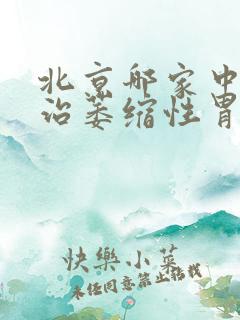 北京哪家中
治萎缩性胃
快樂小菜
未经同意禁止搭载